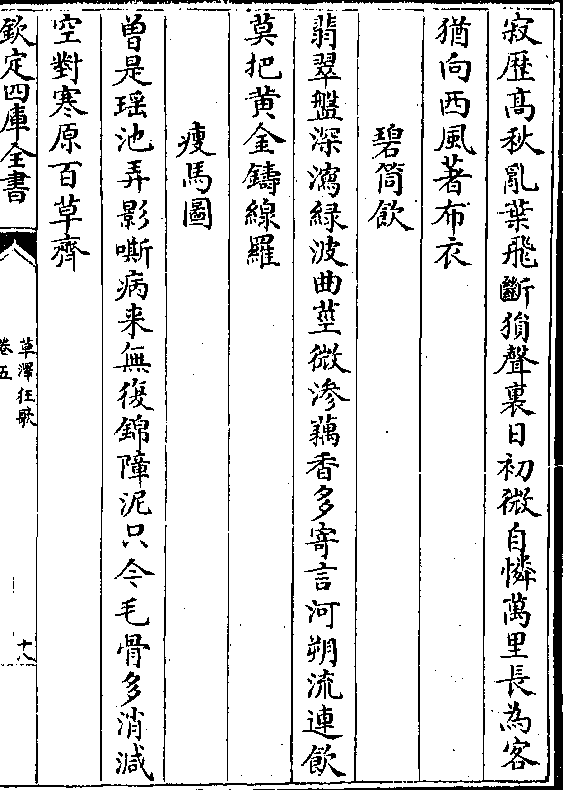 寂歴髙秋亂葉飛斷猿聲裏日初微自憐萬里長為客
猶向西風著布衣
碧筒飲
翡翠盤深瀉緑波曲莖微渗藕香多寄言河朔流連飲
莫把黄金鑄線羅
瘦馬圖
曽是瑶池弄影嘶病来無復錦障泥只今毛骨多消減
空對寒原百草齊
欽定四庫全書
草澤狂歌
卷五
十八